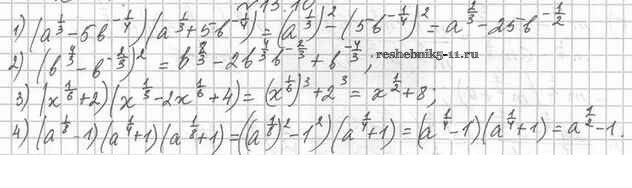 13.10
1) (a^{1/3} - 5b^{-1/4})(a^{1/3} + 5b^{-1/4}) = (a^{1/3})^2 - (5b^{-1/4})^2 = a^{2/3} - 25b^{-1/2}
2) (b^{4/3} - b^{-2/3})^2 = b^{8/3} - 2b^{4/3}b^{-2/3} + b^{-4/3};
reshebnik5-11.ru
3) (x^{1/6} + 2)(x^{1/3} - 2x^{1/6} + 4) = (x^{1/6})^3 + 2^3 = x^{1/2} + 8;
4) (a^{1/8} - 1)(a^{1/4} + 1)(a^{1/8} + 1) = ((a^{1/8})^2 - 1^2)(a^{1/4} + 1) = (a^{1/4} - 1)(a^{1/4} + 1) = a^{1/2} - 1.